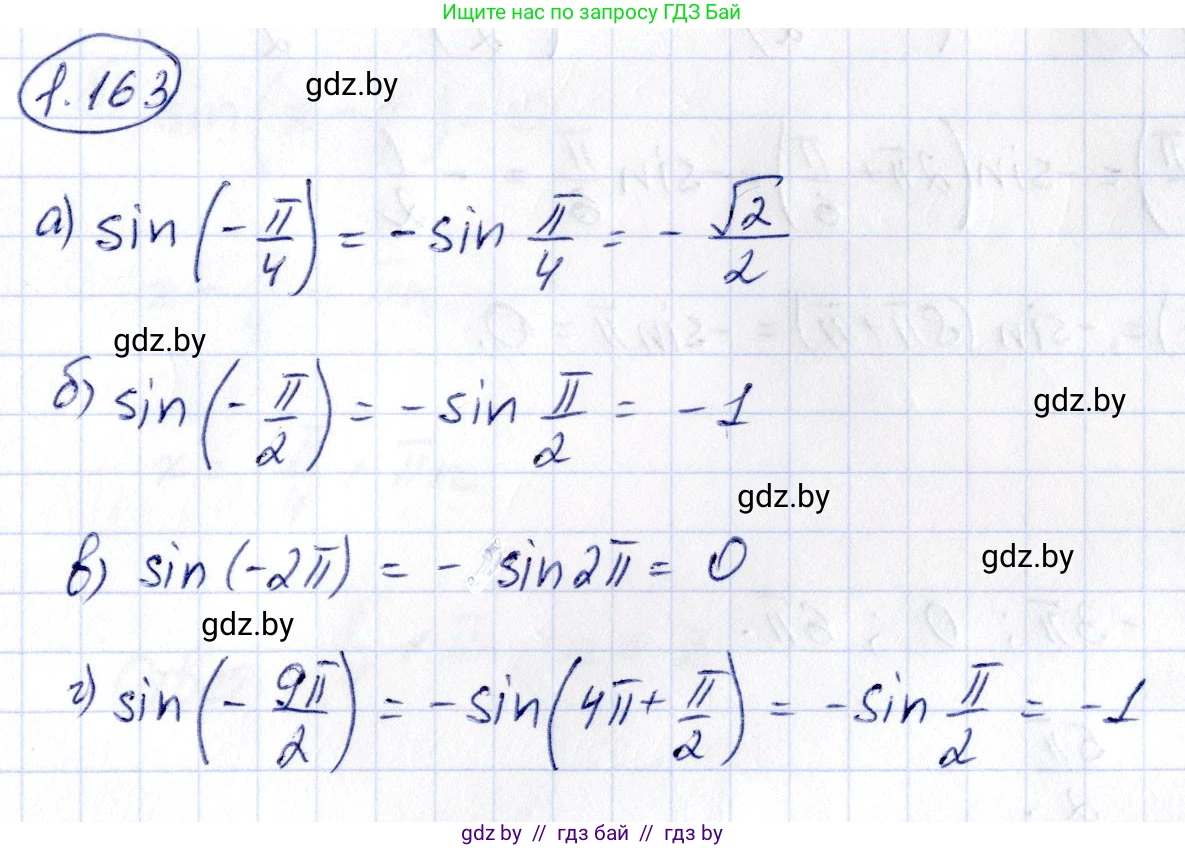 Ищите нас по запросу ГДЗ Бай
1.163
gdz.by
а) sin(-π/4) = -sin π/4 = - √2/2
gdz.by
б) sin(-π/2) = -sin π/2 = -1
gdz.by
gdz.by
в) sin(-2π) = - sin2π = 0
gdz.by
gdz.by
г) sin(-9π/2) = -sin(4π+π/2) = -sin π/2 = -1
gdz.by // гдз бай // гдз by